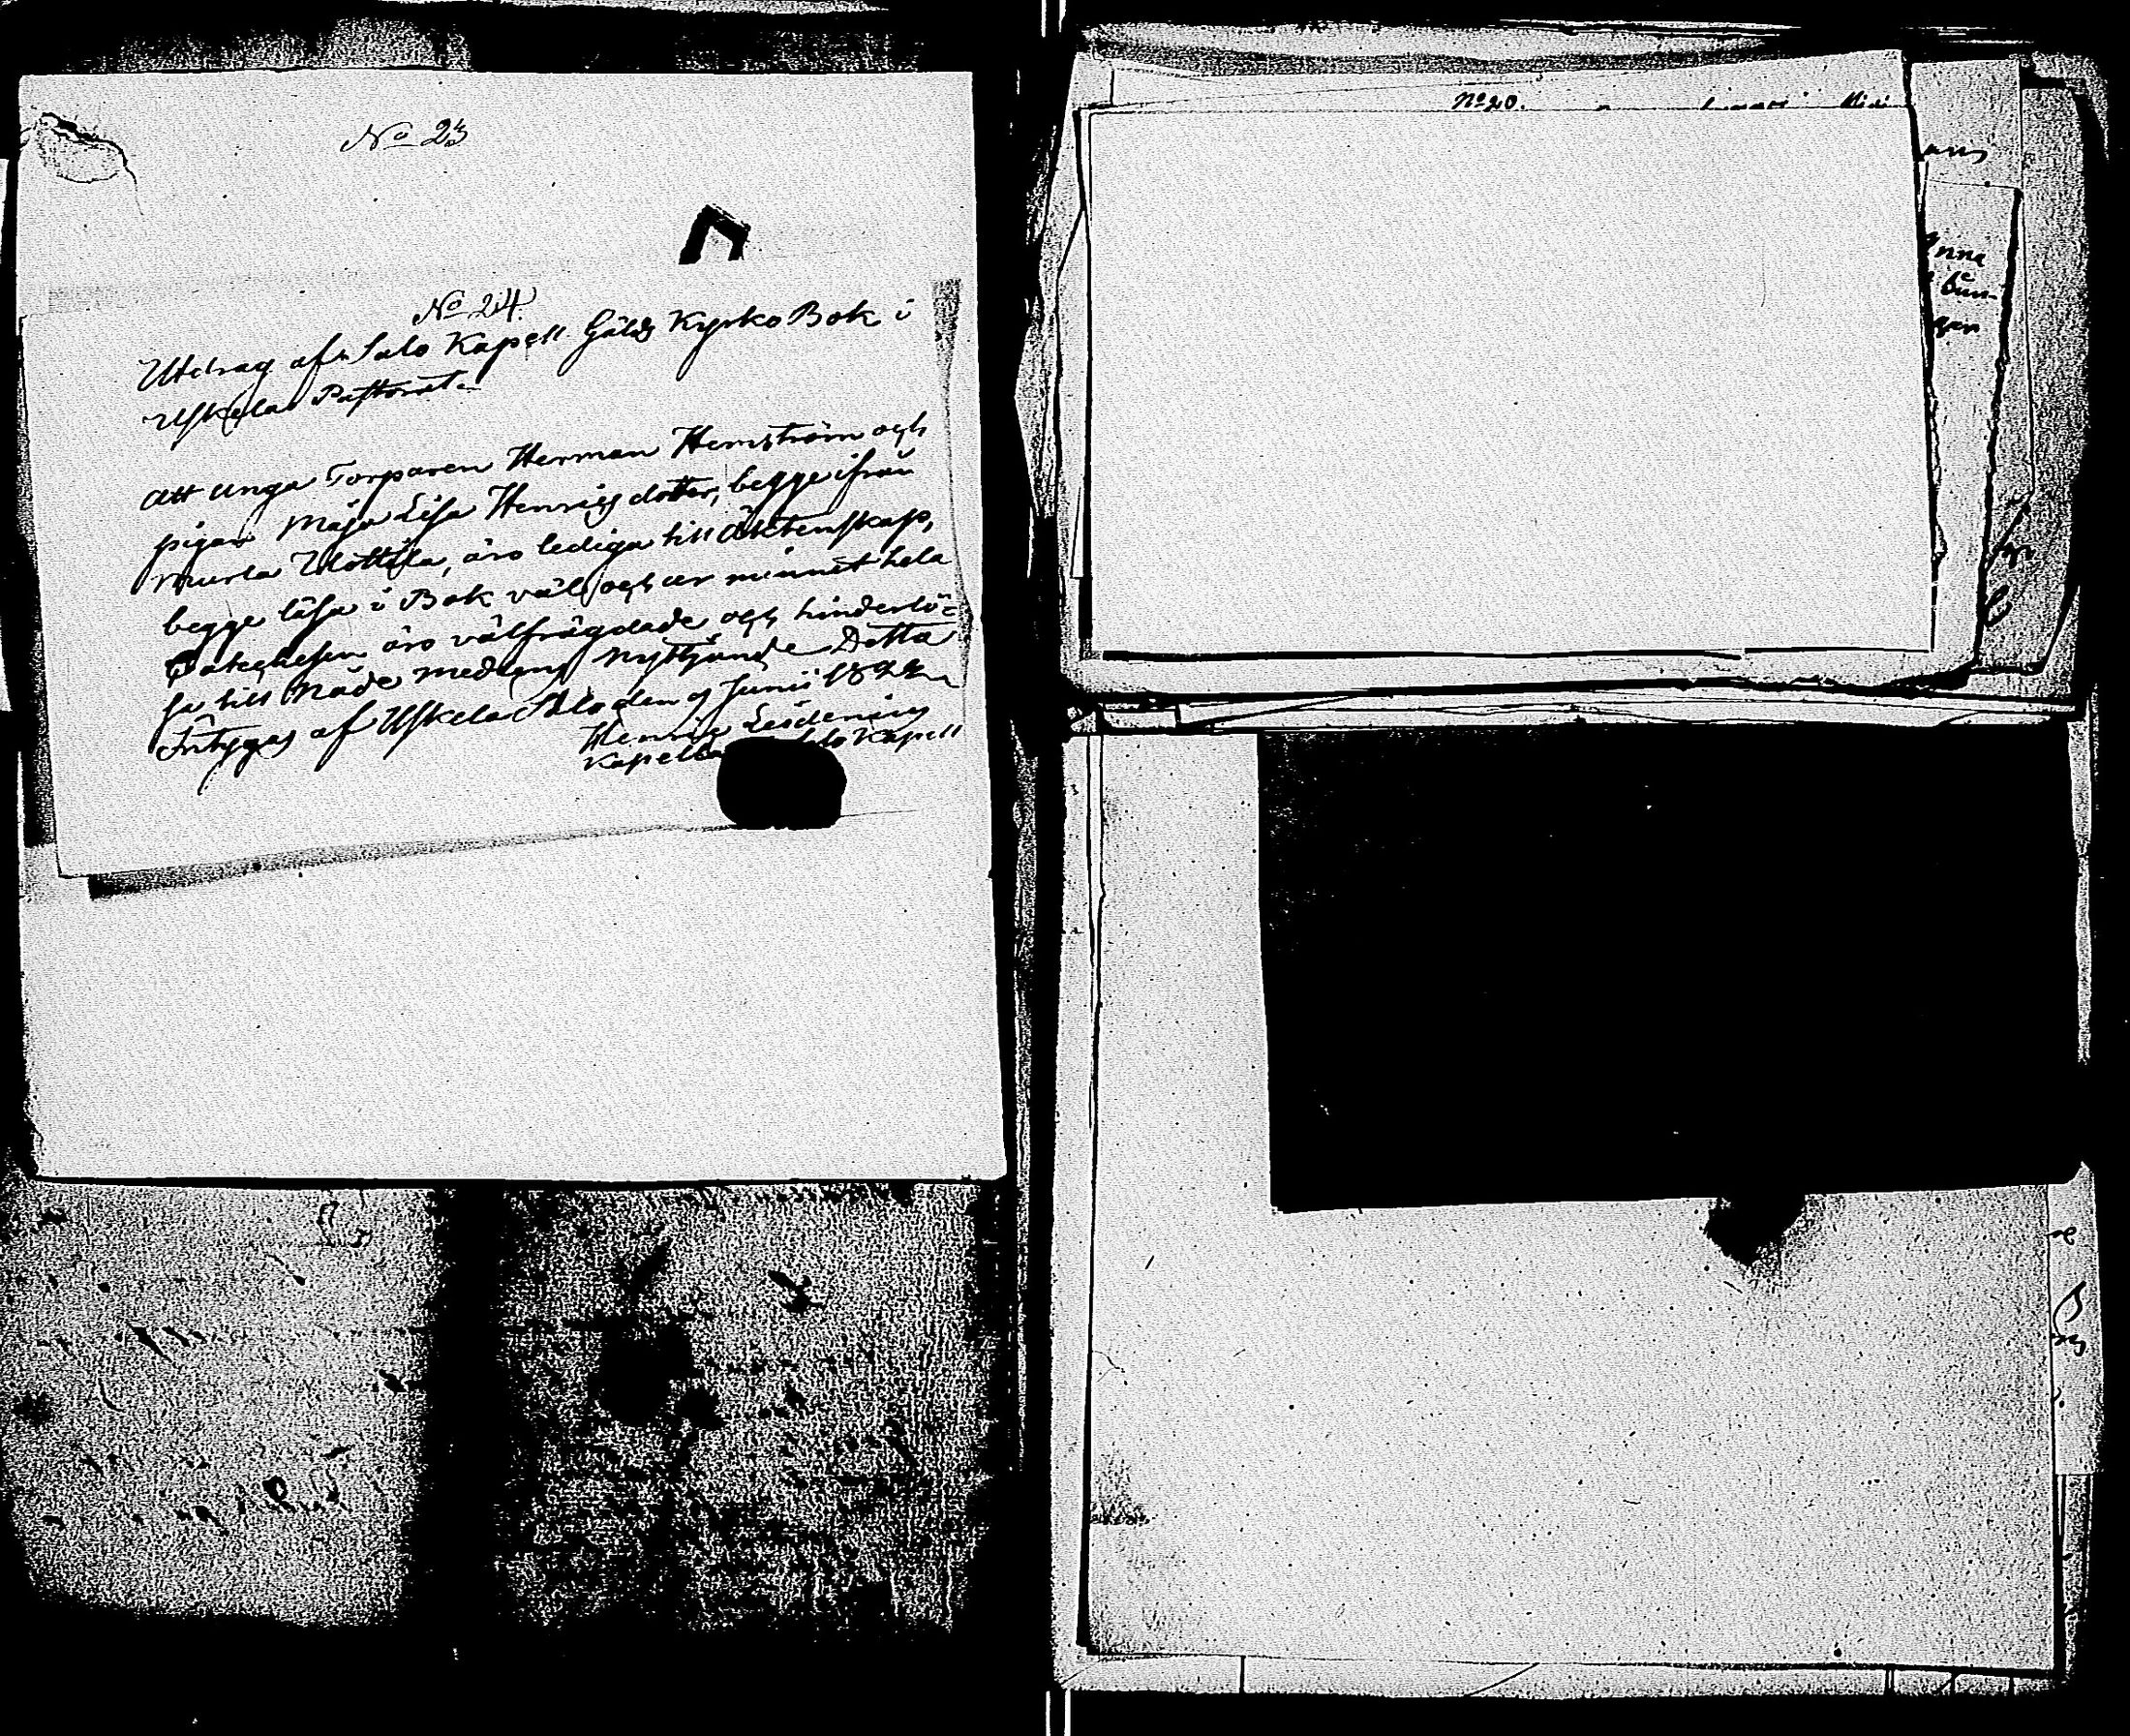 No 23
No 24.
Utdrag af Salo Kapell Gälds Kyrko Bok i
Uskela Pastorat.
Att unga Torparen Herman Hemström och
pigan Maja Lisa Henrics dotter, begge ifrån
Murla Ulottila, äro lediga till Äktenskap,
begge läsa i Bok väl och ur minnet hela
Catechesen äro välfrägdade och hinderlö-
sa till Nåde medlens Nyttjande Detta
Intygas af Uskela Salo den 9 Junii 1822
Henric Leidenius
Kapell
No 20.
ans
Anna
gen